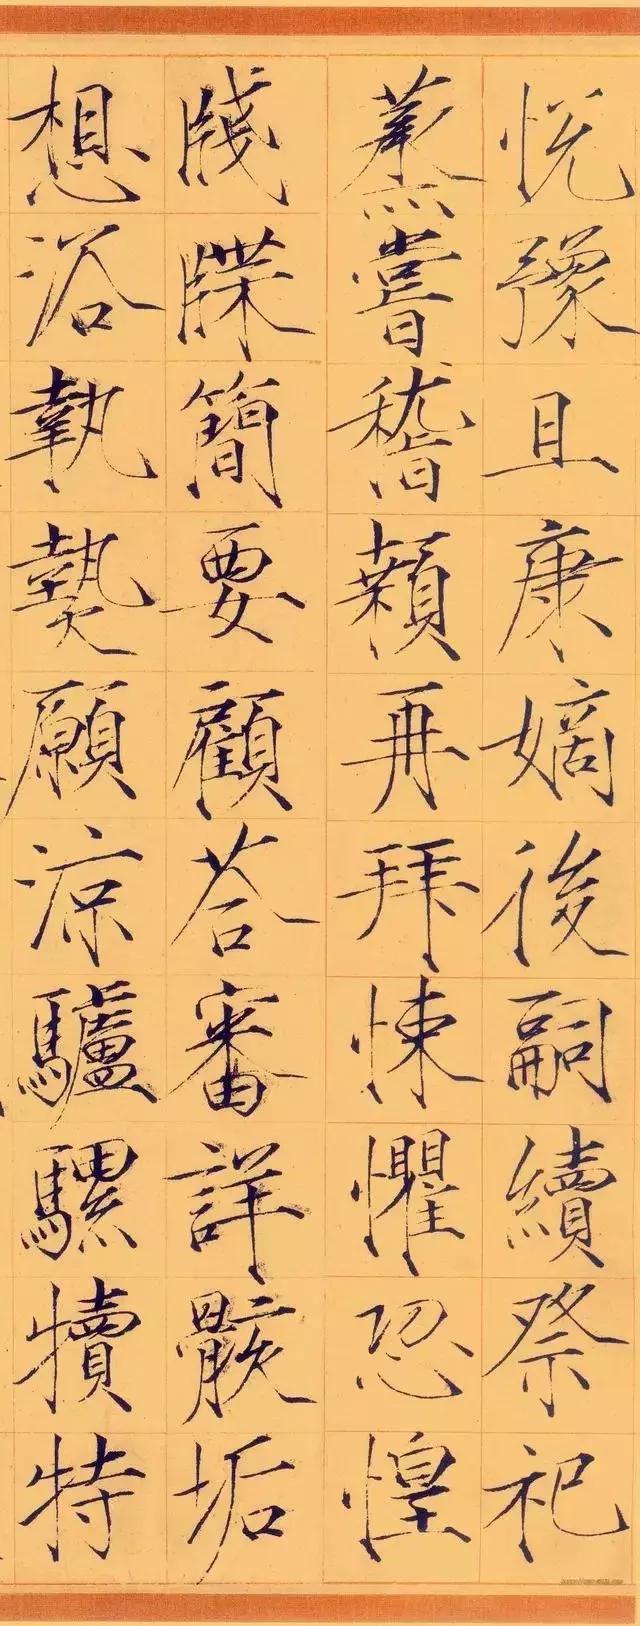 悅豫且康嫡後嗣續祭祀
蒸嘗稽顙再拜悚懼恐惶
牋牒簡要顧荅審詳骸垢
想浴執熱願涼驢騾犢特